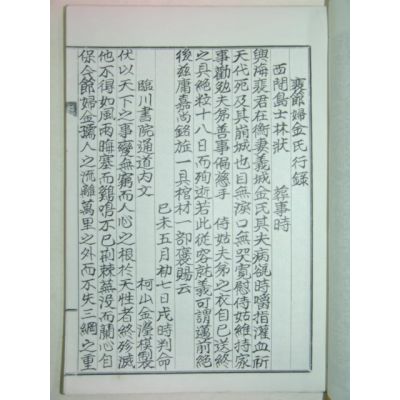 裵節婦金氏行錄
西間島士林狀 葬事時
興海裵君在衡妻義城金氏其夫病親時嚼指灌血祈
天代死及其崩城也目無淚口無哭寬慰侍姑維持家
事勸勉夫弟善事偏慈手 侍姑夫弟之衣自已送終
之具絶粒十八日而殉逝若此從容就義可謂邁前絶
後玆庸嘉尙銘旌一具棺材一部褒賜云
己未五月初七日戌時判命
臨川書院通道內文 柯山金瀅模製
伏以天下之事變無窮而人心之根於天性者終殄滅
他不得如風雨晦塞而鷄鳴不已荊棘蕪沒而蘭心自
保今節婦金孺人之流離萬里之外而不失三綱之重